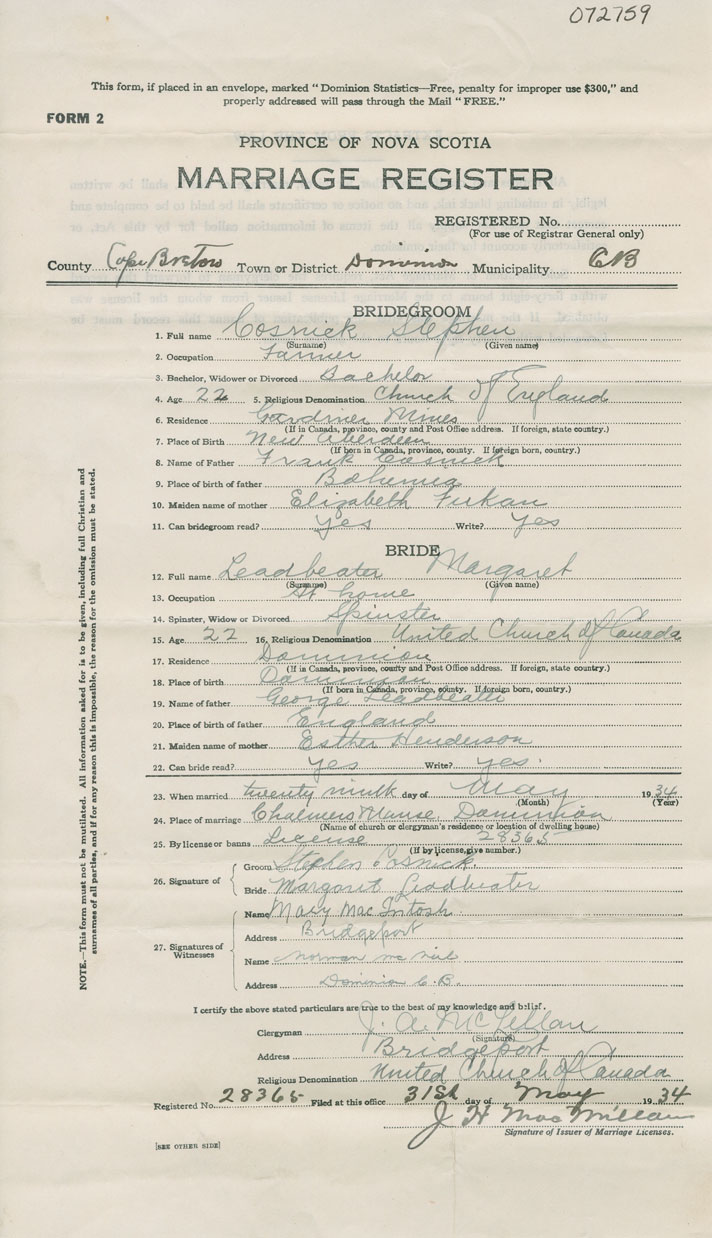 072759
This form, if placed in an envelope, marked "Dominion Statistics—Free, penalty for improper use $300," and
properly addressed will pass through the Mail "FREE."
FORM 2
PROVINCE OF NOVA SCOTIA
MARRIAGE REGISTER
REGISTERED No.
(For use of Registrar General only)
County Cape Breton Town or District Dominion Municipality C B
BRIDEGROOM
1. Full name Cosnick Stephen
(Surname) (Given name)
2. Occupation Farmer
3. Bachelor, Widower or Divorced Bachelor
4. Age 22 5. Religious Denomination Church of England
6. Residence Gardiner Mines
(If in Canada, province, county and Post Office address. If foreign, state country.)
7. Place of Birth New Aberdeen
(If born in Canada, province, county. If foreign born, country.)
8. Name of Father Frank Cosnick
9. Place of birth of father Bohemia
10. Maiden name of mother Elizabeth Fukan
11. Can bridegroom read? yes Write? yes
BRIDE
12. Full name Leadbeater Margaret
(Surname) (Given name)
13. Occupation At home
14. Spinster, Widow or Divorced Spinster
15. Age 22 16. Religious Denomination United Church of Canada
17. Residence Dominion
(If in Canada, province, county and Post Office address. If foreign, state country.)
18. Place of birth Dominion
(If born in Canada, province, county. If foreign born, country.)
19. Name of father George Leadbeater
20. Place of birth of father England
21. Maiden name of mother Esther Henderson
22. Can bride read? yes Write? yes.
23. When married twenty ninth day of May 1934
(Month) (Year)
24. Place of marriage Chalmers Manse, Dominion
(Name of church or clergyman's residence or location of dwelling house)
25. By license or banns License 28365
(If by license, give number.)
26. Signature of
Groom Stephen Cosnick
Bride Margaret Leadbeater
27. Signatures of Witnesses
Name Mary MacIntosh
Address Bridgeport
Name Norman McNeil
Address Dominion C.B.
I certify the above stated particulars are true to the best of my knowledge and belief.
Clergyman J. A. McLellan
(Signature)
Address Bridgeport
Religious Denomination United Church of Canada
Registered No. 28365 Filed at this office 31st day of May 1934
J H MacMillan
Signature of Issuer of Marriage Licenses.
[SEE OTHER SIDE]
NOTE.—This form must not be mutilated. All information asked for is to be given, including full Christian and
surnames of all parties, and if for any reason this is impossible, the reason for the omission must be stated.